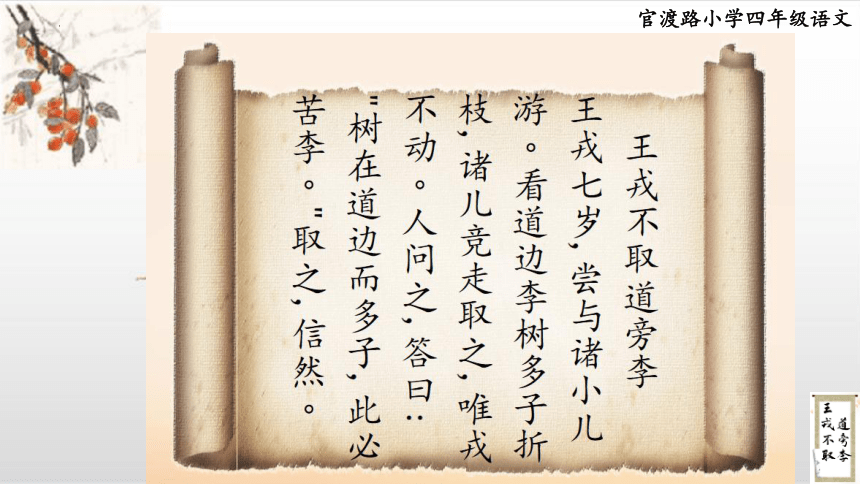 官渡路小学四年级语文
王戎不取道旁李
王戎七岁，尝与诸小儿
游。看道边李树多子折
枝，诸儿竞走取之，唯戎
不动。人问之，答曰：
"树在道边而多子，此必
苦李。"取之，信然。
王戎不取
道旁李